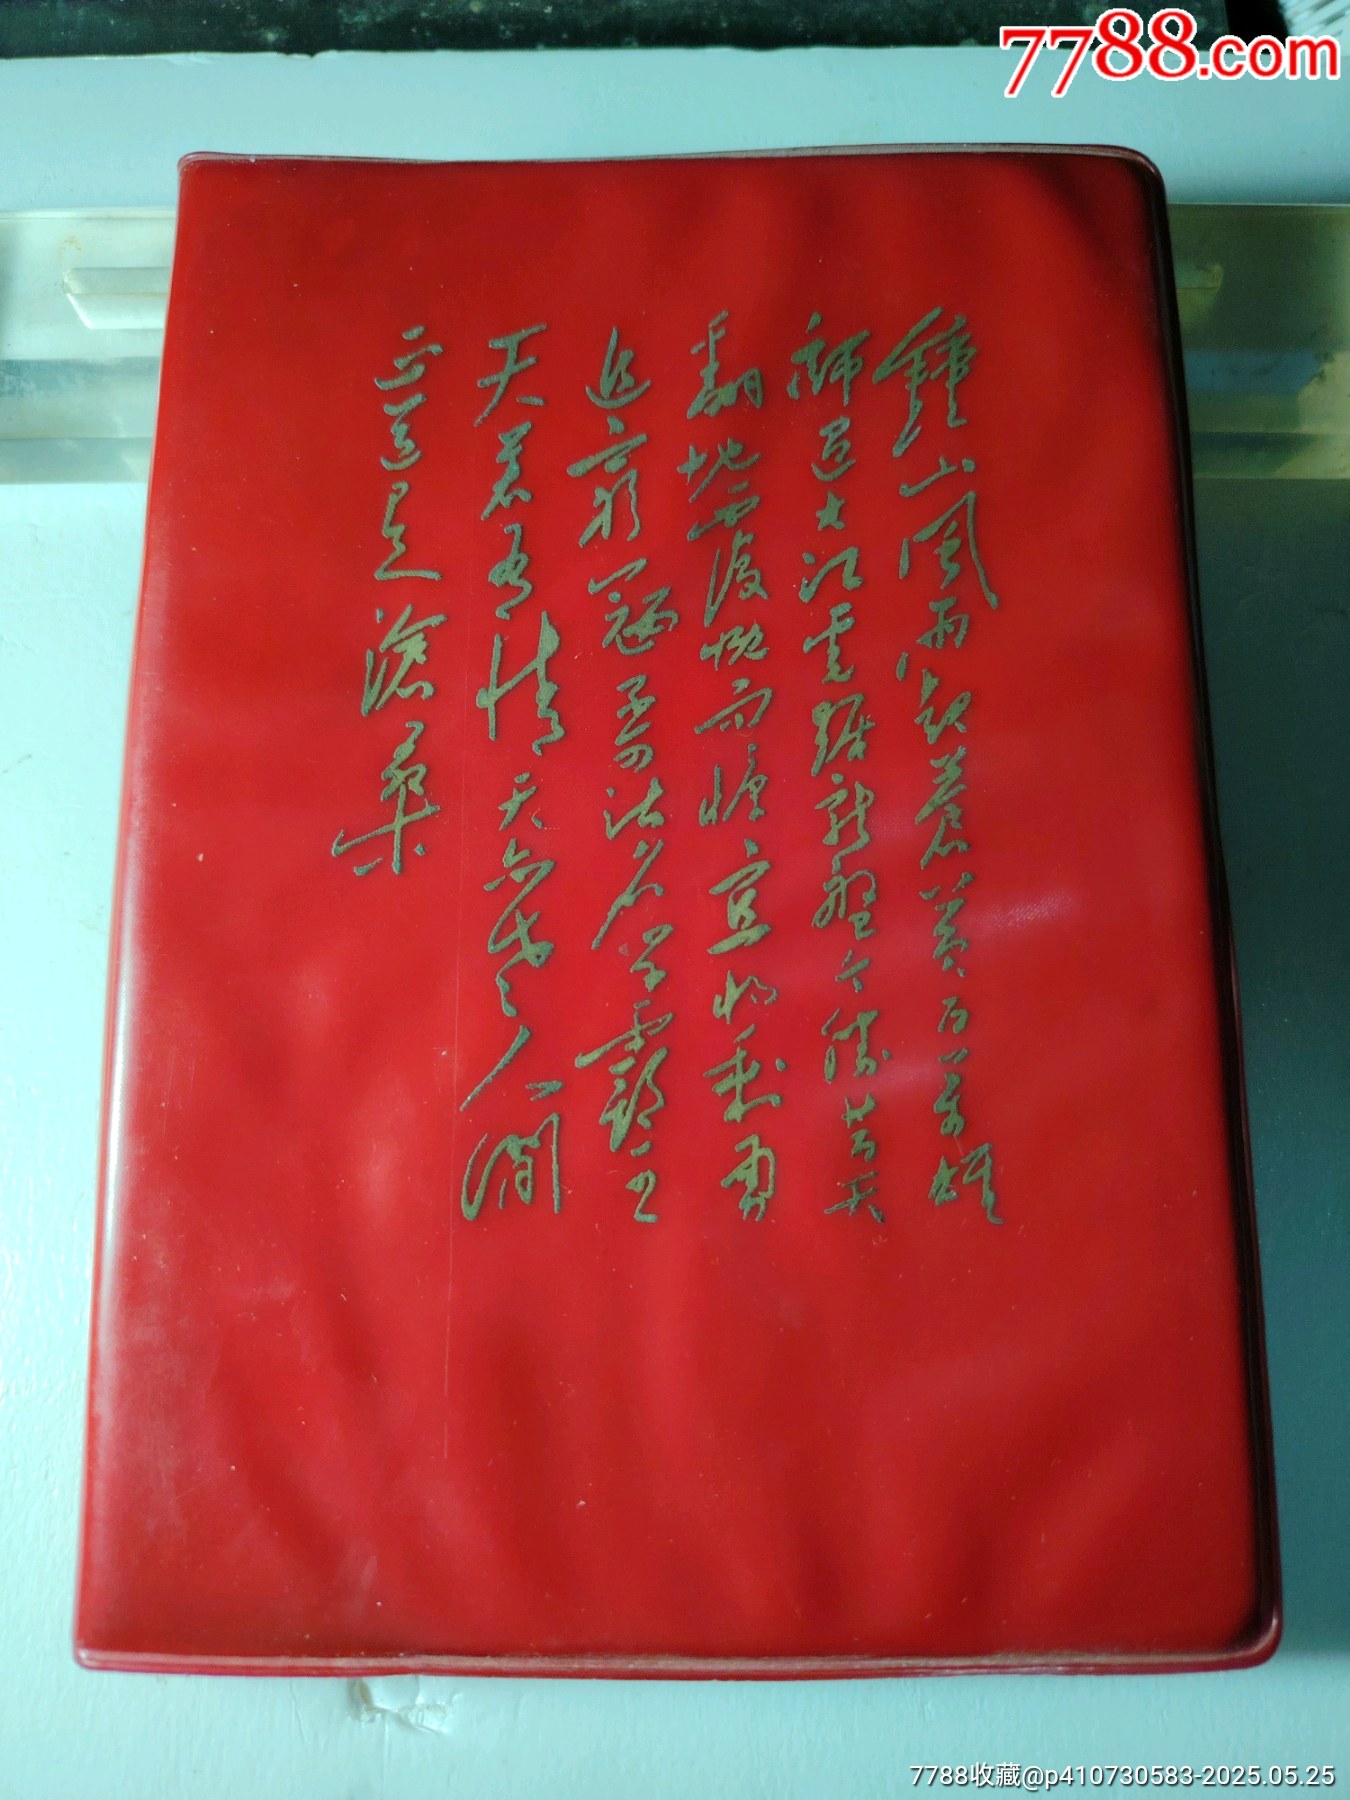 7788.com
鐘山風雨起蒼黃百万雄
師過大江虎踞龍盤今勝昔天
翻地覆慨而慷宜將剩勇
追窮寇不可沽名學霸王
天若有情天亦老人間
正道是滄桑
7788收藏@p410730583-2025.05.25